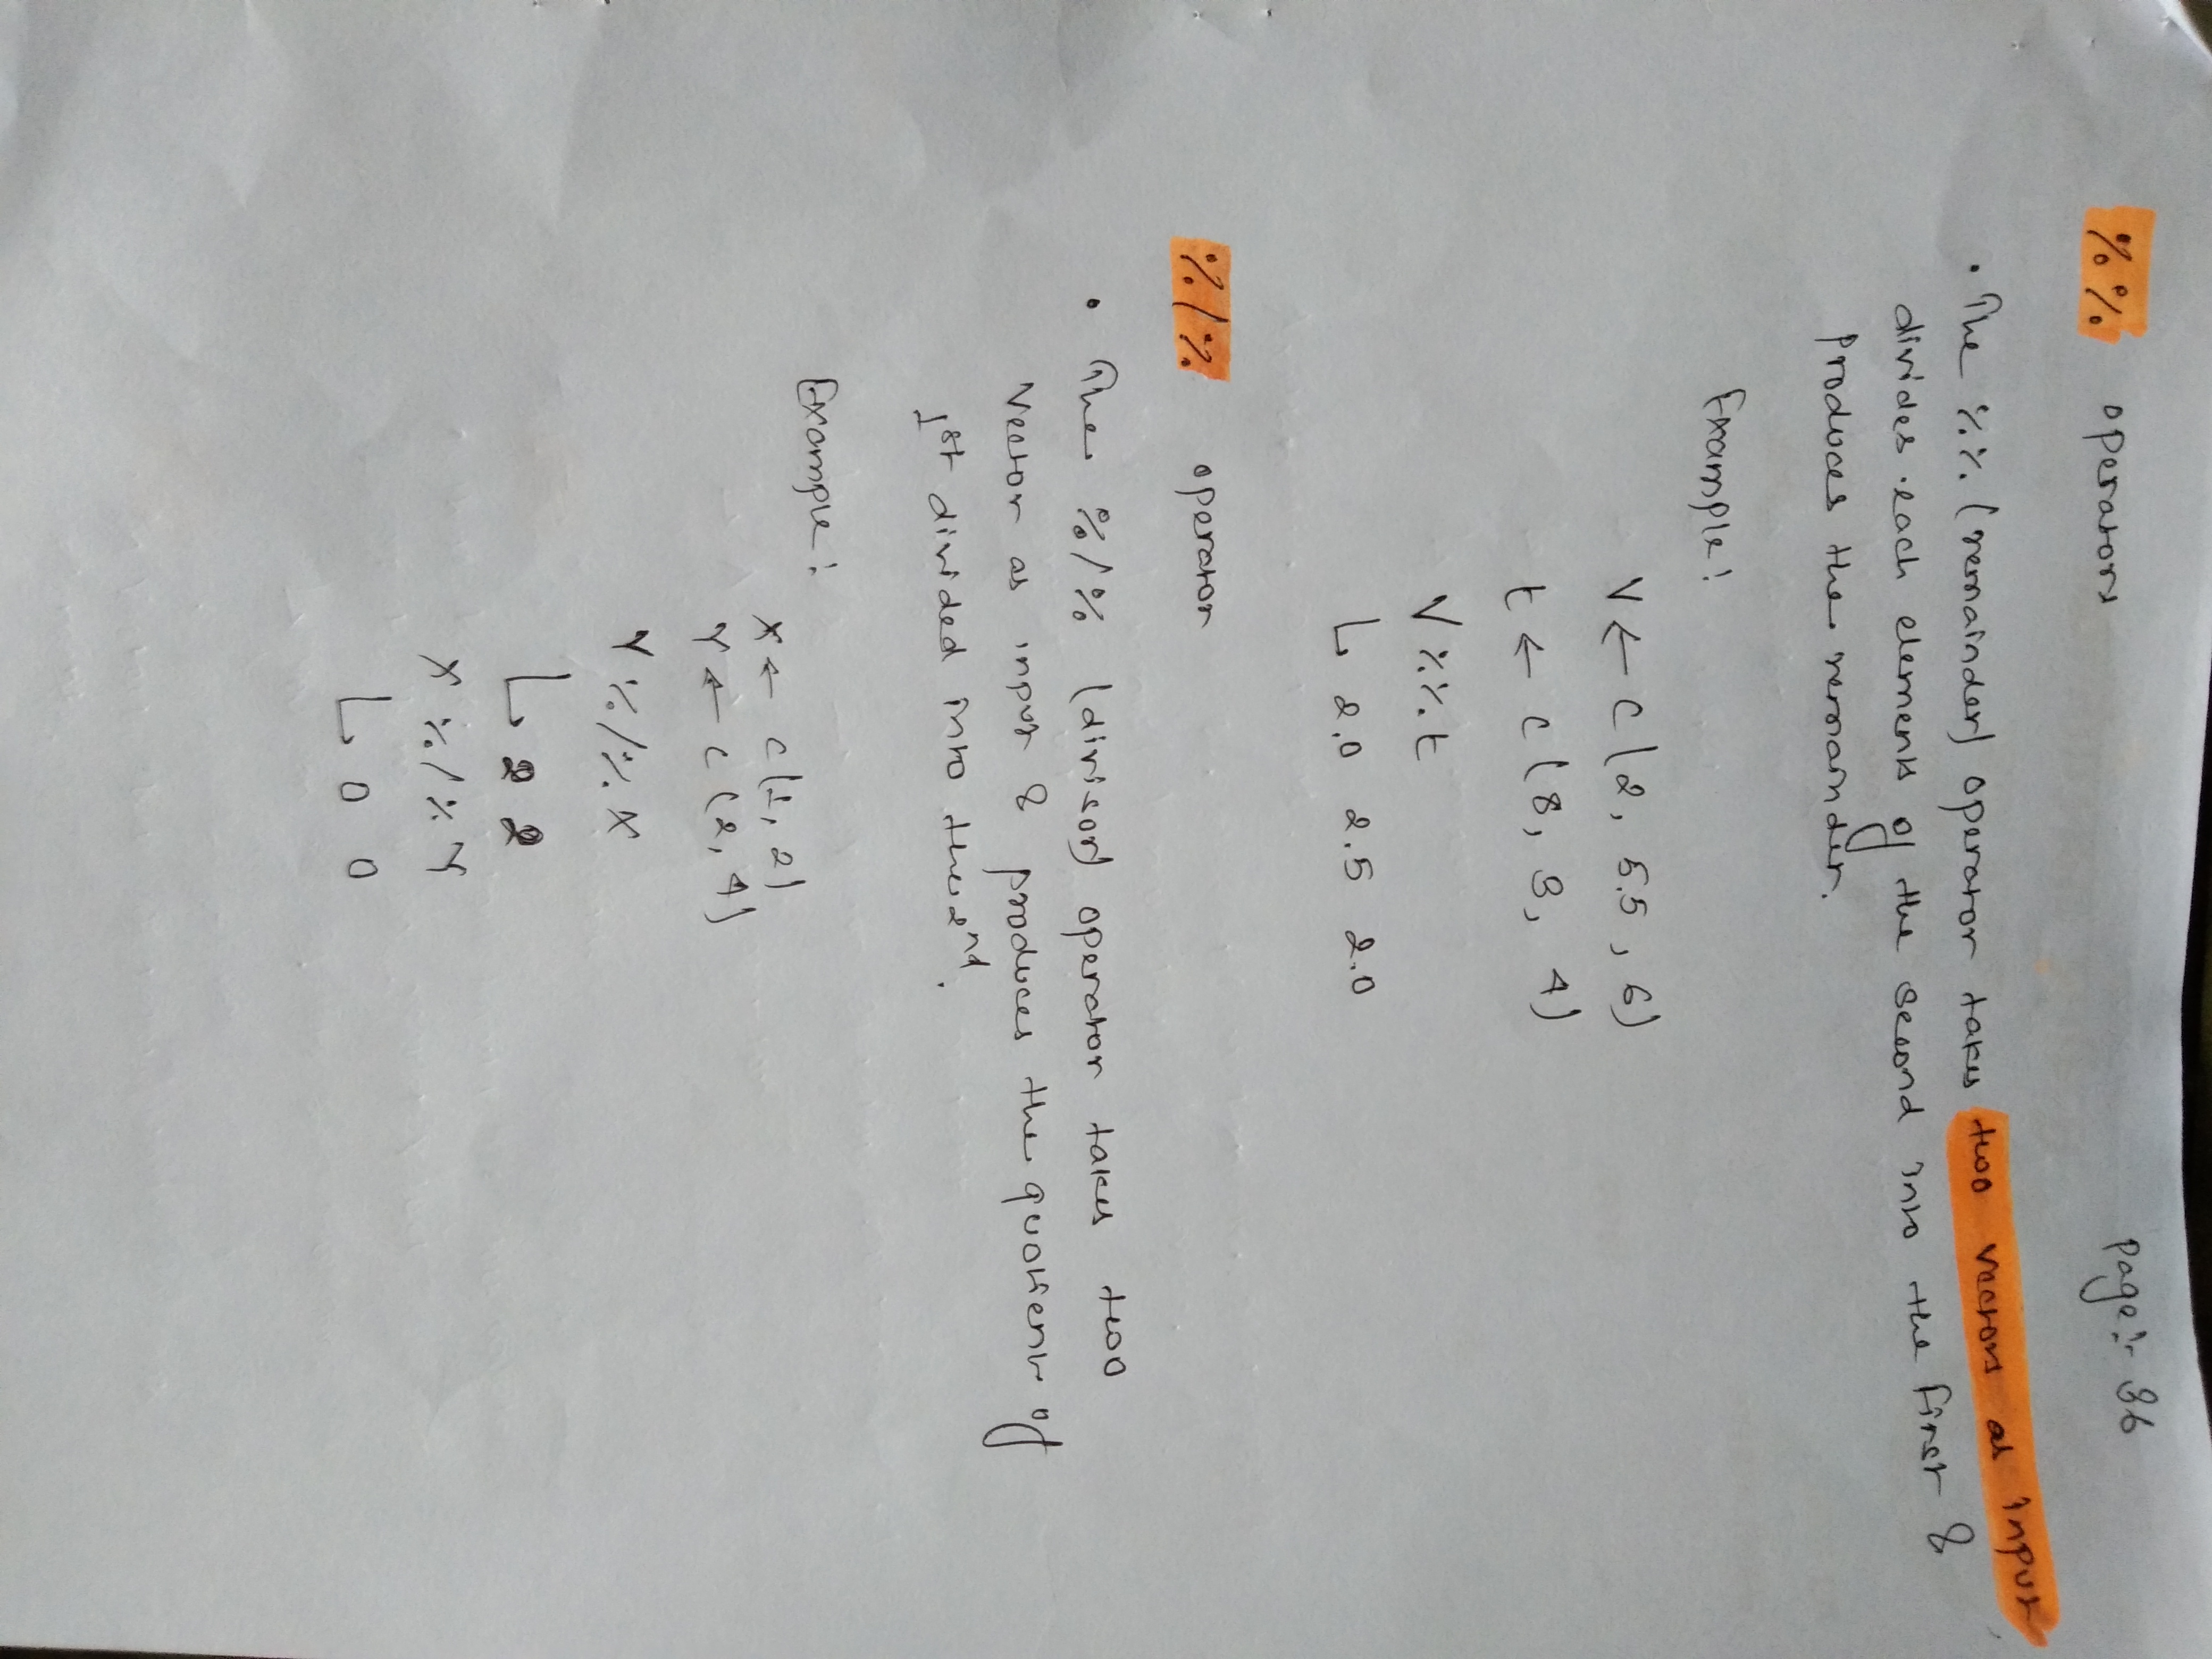 Page:- 36
%% operators
• The %% (remainder) operator takes two vectors as input
divides each elements of the second into the first &
produces the remainder.
Example:
V ← c(2, 5.5, 6)
t ← c(8, 3, 4)
V %% t
↳ 2.0 2.5 2.0
%/% operator
• The %/% (divisor) operator takes two
vector as input & produces the quotient of
1st divided into the 2nd.
Example:
x ← c(1, 2)
Y ← c(2, 4)
Y %/% x
↳ 2 2
x %/% Y
↳ 0 0